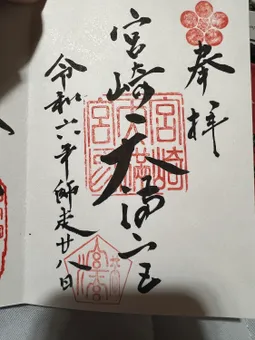 奉拝
宮崎天満宮
令和六年師走廿八日
宮崎
天満
宮印